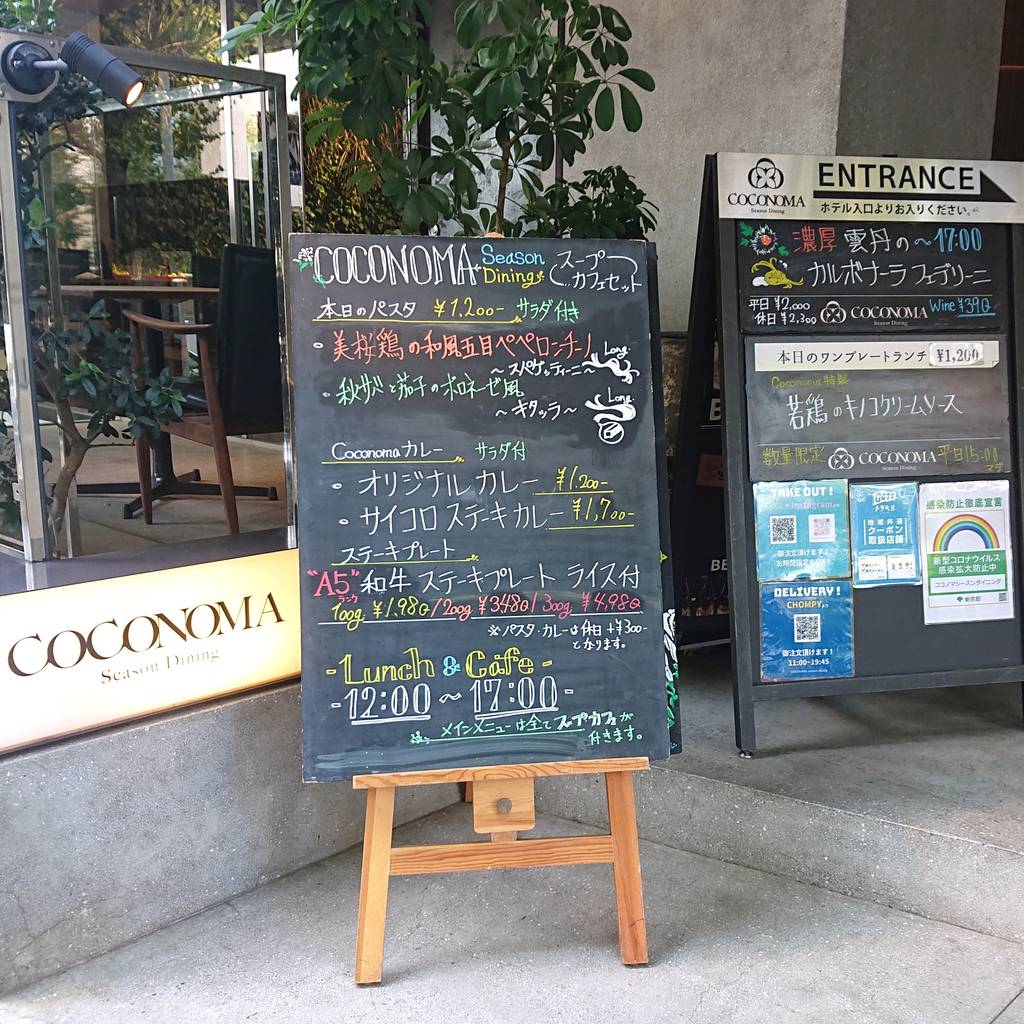 COCONOMA Season Dining
スープ カフェセット
本日のパスタ ¥1,200- サラダ付き
・美桜鶏の和風五目ペペロンチーノ
～スパゲッティーニ～ Long
・秋サバと茄子のボロネーゼ風
～キタッラ～ Long
Coconomaカレー サラダ付
・オリジナルカレー ¥1,200-
・サイコロステーキカレー ¥1,700-
ステーキプレート
"A5"ランク 和牛 ステーキプレート ライス付
100g ¥1,980/200g ¥3480/300g ¥4,980
※パスタ・カレーは休日+¥300-
となります。
-Lunch & Cafe-
-12:00～17:00-
メインメニューは全てスープカフェが
付きます。
COCONOMA
Season Dining
COCONOMA
Season Dining
ENTRANCE
ホテル入口よりお入りください。
濃厚 雲丹の ～17:00
カルボナーラ フェデリーニ
平日 ¥2,000
休日 ¥2,300
COCONOMA
Season Dining
Wine ¥390
本日のワンプレートランチ ¥1,200
Coconoma特製
若鶏のキノコクリームソース
数量限定 COCONOMA 平日15:00マデ
Season Dining
TAKE OUT!
Instagramより
御注文頂けます!
GoTo
トラベル
地域共通
クーポン
取扱店舗
感染防止徹底宣言
新型コロナウイルス
感染拡大防止中
ココノマシーズンダイニング
東京都
DELIVERY!
CHOMPYより
御注文頂けます!
11:00~19:45